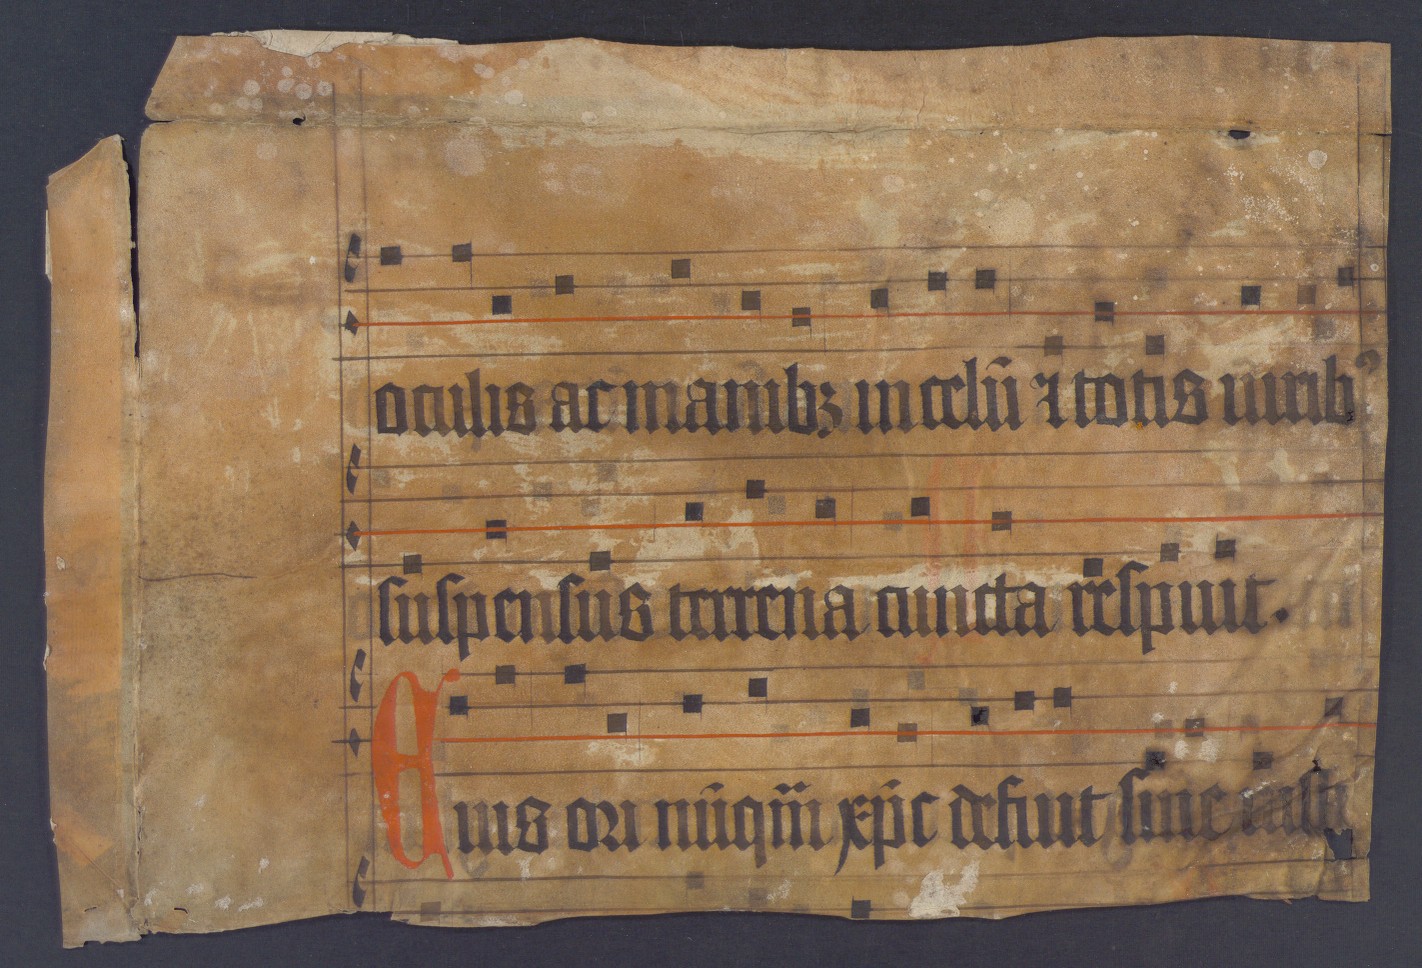 oculis ac manibꝫ in celū ⁊ totis uiribꝰ
suspensus terrena cuncta respuit.
Cuius ori nūqm̄ xp̄c defuit siue iusti